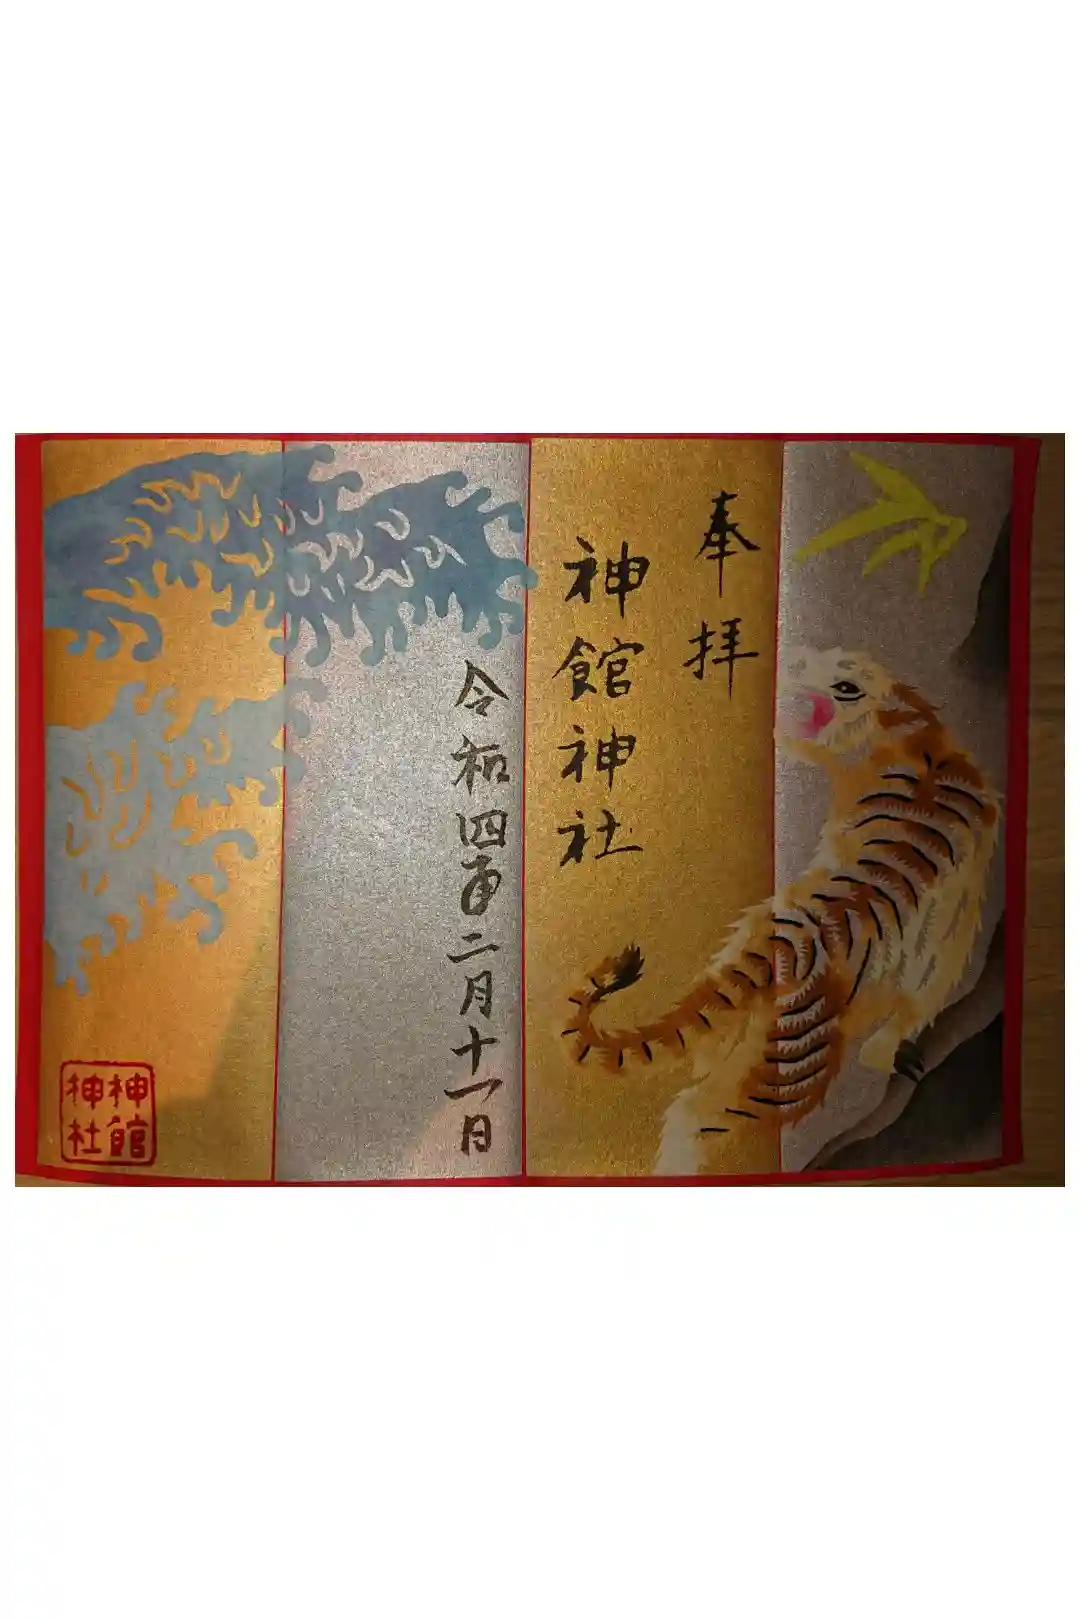 奉拝
神館神社
令和四年二月十一日
神館
神社